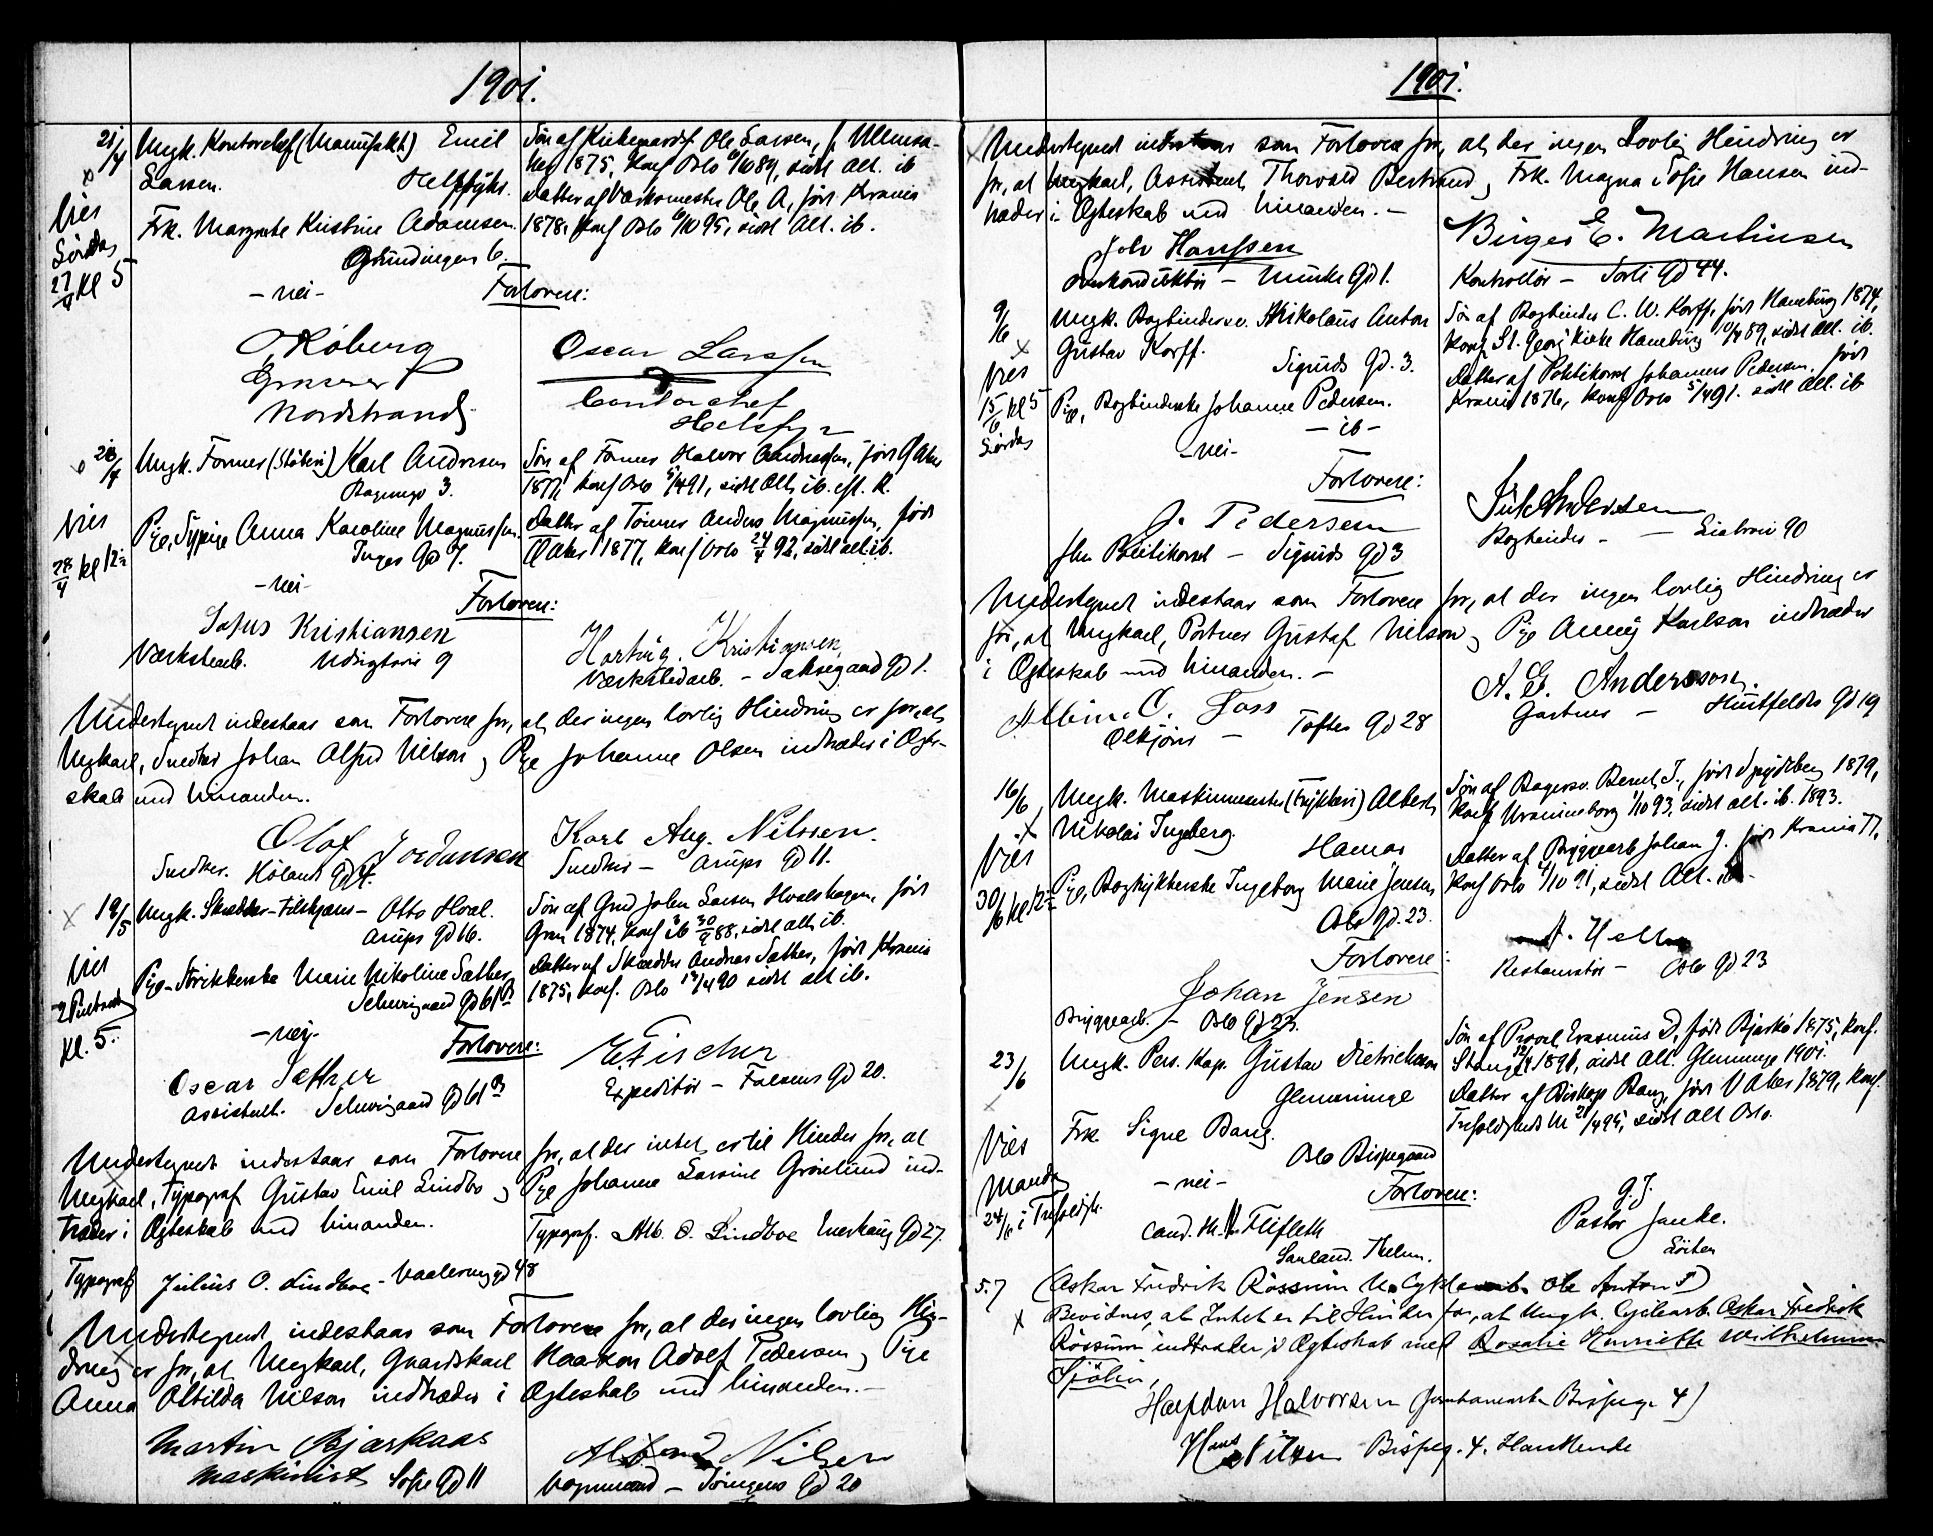 1901.
21/4 Ungk. Kontorchef (Manufakt.) Emil
Larsen. Helsfyhr.
Vies
Lördag
27/4 kl 5
Frk. Margrethe Kristine Adamsen.
Gründingen 6.
Sön af Ole Larsen, f. Ullensa-
ker 1875, Konf Oslo 6/10 89, sidst alt. ib
Datter af Værksmester Ole A, födt Krania
1878, Konf Oslo 6/10 95, sidst Alt. ib.
- nei -
Forlovere:
O. Koberg
Grosserer
Nordstrand
Oscar Larssen
Contorchef
Helsfyr
28/4 Ungk. Former (Stöberi) Karl Andresen
3.
Vies
28/4 kl 12½
Pige, Sypige Anna Karoline Magnussen.
Inges Gd 7.
Sön af Former Halvor Andreassen, födt Ø Aker
1877, Konf Oslo 5/4 91, sidst Alt. ib. eft. K.
Datter af Tömmer Anders Magnussen, födt
Ø Aker 1877, Konf Oslo 24/4 92, sidst alt. ib.
- nei -
Forlovere:
Sofus Kristiansen
Værkstearb. Udsigtsvei 9
Hartvig. Kristiansen,
Værkstedarb. - Saksegaard Gd 1.
Undertegnet indestaar som Forlovere for, at der ingen lovlig Hindring er for, at
Ungkarl, Snedker Johan Alfred Nilsen og Pige Johanne Olsen indtræder i Ægte-
skab med hinanden.
Olaf Jordansen
Snedker. Hölands Gd 4.
Karl Aug. Nilssen.
Snedker - Arups Gd 11.
19/5 Ungk. Skrædder-Tilskjærer - Otto Hval.
Arups Gd 16.
Vies
2 Pintsedag
kl. 5.
Pige - Strikkerske Marie Nikoline Sæther,
Schweigaard Gd 61 B
Sön af Grd John Larsen Hvalshagen, födt
Gran 1874, Konf ib 30/9 88, sidst alt. ib.
Datter af Skrædder Andreas Sæther, födt Krania
1875, Konf. Oslo 13/4 90 sidst alt ib.
- nei -
Forlovere:
Oscar Sæther
Assistent. Schweigaard Gd 61 B
E. Fischer
Expeditör - Falsens Gd 20.
Undertegnet indestaar som Forlovere for, at der intet er til Hinder for, at
Ungkarl, Typograf Gustav Emil Lindbo og Pige Johanne Lovine Grönlund ind-
træder i Ægteskab med hinanden.
Typograf. Alb. O. Lindboe Enerhaug Gd 27.
Typograf Julius O. Lindboe - Vaalerenggd 48
Undertegnet indestaar som Forlovere for, at der ingen lovlig Hin-
dring er for, at Ungkarl, Gaardskarl Haakon Adolf Pedersen og Pige
Anna Otilda Nilsen indtræder i Ægteskab med hinanden. -
Martin Bjarkaas
Maskinist Sofie Gd 11
Nilsen
Vognmand - Sörengens Gd 20
1901.
Undertegnet indestaar som Forlovere for, at der ingen Lovlig Hindring er
for, at Ungkarl, Assistent Thorvald Bertrand og Frk. Magna Sofie Hansen ind-
træder i Ægteskab med hinanden. -
Joh Hanssen
Overkonduktör - Munke Gd 1.
Birger E. Martinsen
Kontrollör - Torv Gd 44.
9/6 Ungk. Bogbindersv. Nikolaus Anton
Gustav Korff. Sigurds Gd. 3.
Vies
15/6 kl 5
Lördag
Pige, Bogbinderske Johanne Pedersen.
- ib -
Sön af Bogbinder C. W. Korff, födt Hamburg 1874,
Konf. St. Georg Kirke Hamburg 10/4 89, sidst Alt. ib.
Datter af Politikonst Johannes Pedersen. födt
Krania 1876, Konf Oslo 5/4 91. sidst Alt. ib
- nei -
Forlovere:
J. Pedersen
fhv. Politikonst - Sigurds Gd 3
Andersen
Bogbinder - - 90
Undertegnet indestaar som Forlovere for, at der ingen lovlig Hindring er
for, at Ungkarl, Portner Gustaf Nilson og Pige Anny Karlson indtræder
i Ægteskab med hinanden. -
Albin. O. Foss
Ølkjörer - Toftes Gd 28
A. G. Andersson.
Gartner - Huitfeldts Gd 19
16/6 Ungk. Maskinmester (Trykkeri) Albert
Nikolai Ingeberg. Hamar
Vies
30/6 kl 12½
Pige, Bogtrykkerske Ingeborg Marie Jensen,
Oslo Gd. 23.
Sön af Bagersv. Bernt I., födt Spydeberg 1879,
Konf Uranienborg 1/10 93, sidst alt. ib. 1893.
Datter af Bryggearb Johan J. födt Krania 77,
Konf Oslo 4/10 91, sidst Alt. ib.
Forlovere:
Johan Jensen
Bryggearb. - Oslo Gd 23.
Restauratör - Oslo Gd 23
23/6 Ungk. Pers. Kap. Gustav Dietrichson
Glemminge
Vies
Mandag
24/6 i Trefoldigh.
Frk Signe Bang.
Oslo Bispegaard
Sön af Provst Erasmus D, födt Bjarkö 1875, Konf.
Stange 1891, sidst Alt. Glemminge 1901.
Datter af Biskop Bang, födt V Aker 1879, Konf.
Trefoldighed 21/4 95, sidst alt Oslo.
- nei -
Forlovere:
cand. th. Fliflet
Sauland. Thelem.
G. J.
Pastor Janke.
Löiten
5.7 (Oskar Fredrik Rossum U. Cyklearb. Ole Anton)
Bevidnes, at Intet er til Hinder for, at Ungk. Cyklearb. Oskar Fredrik
Rossum indtræder i Ægteskab med Rosalie Henriette Wilhelmine
Sjölin,
Halfdan Halvorsen (Jernbanearb. Bispeg. 4)
Hans Nilsen Bispeg. 4. Handlende